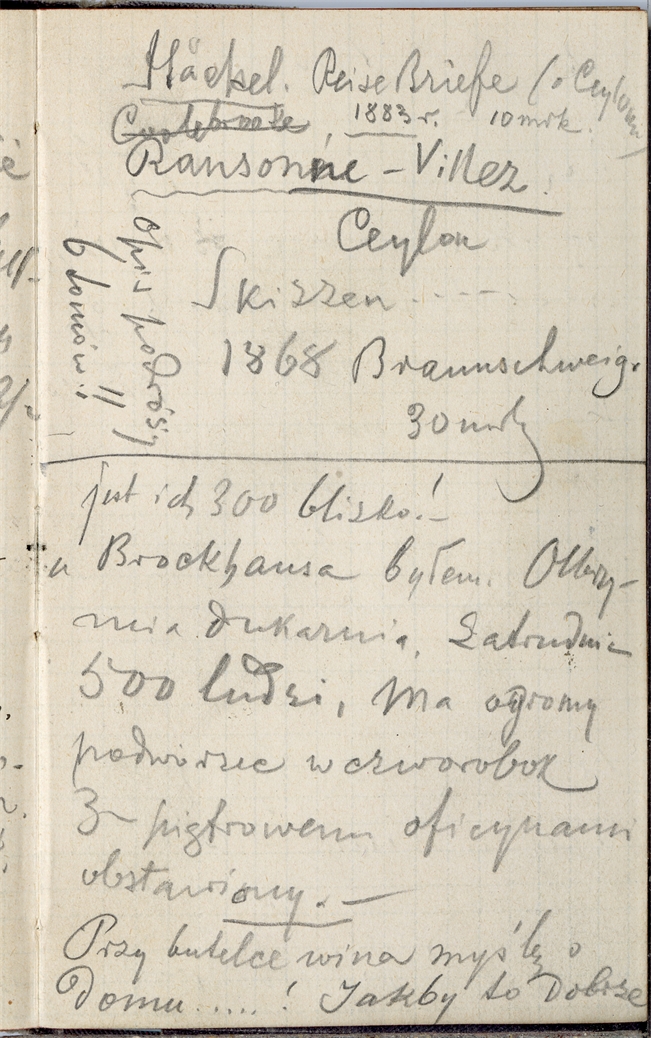 Häckel. ReiseBriefe (o Ceylonie)
1883 r. 10 mrk.
Ransonne - Villez.
Ceylon
Skizzen .....
1868 Braunschweig.
30 mrk
Opis podróży
6 tomów!!
jest ich 300 blisko! –
u Brockhausa byłem. Olbrzy-
mia drukarnia. Zatrudnia
500 ludzi, ma ogromy
podwórzec w czworobok
3-piętrowemi oficynami
obstawiony. —
Przy butelce wina myślę o
Domu .....! Jakby to Dobrze